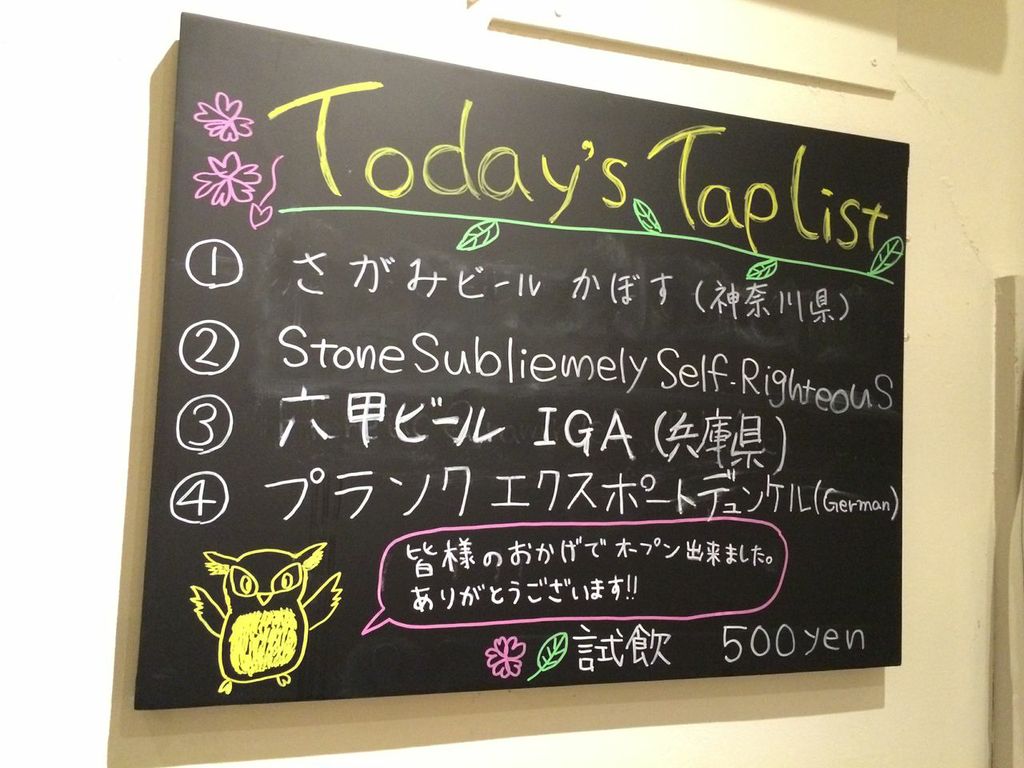 Today's Tap List
① さがみビール かぼす (神奈川県)
② Stone Subliemely Self-Righteous
③ 六甲ビール IGA (兵庫県)
④ プランク エクスポートデュンケル(German)
皆様のおかげでオープン出来ました。
ありがとうございます!!
試飲 500yen